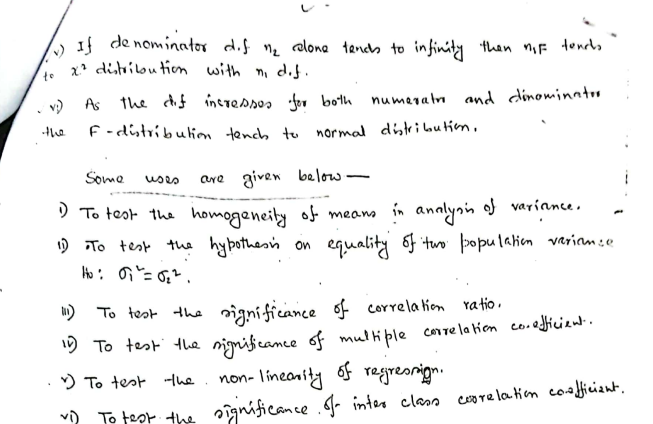 v) If denominator d.f n₂ alone tends to infinity then n₁F tends
to χ² distribution with n₁ d.f.
vi) As the d.f increases for both numerator and dinominator
the F-distribution tends to normal distribution.
Some uses are given below —
i) To test the homogeneity of means in analysis of variance.
ii) To test the hypothesis on equality of two population variance
H₀: σ₁² = σ₂².
iii) To test the significance of correlation ratio.
iv) To test the significance of multiple correlation co.efficient.
v) To test the non-linearity of regression.
vi) To test the significance of inter class coorelation coefficient.